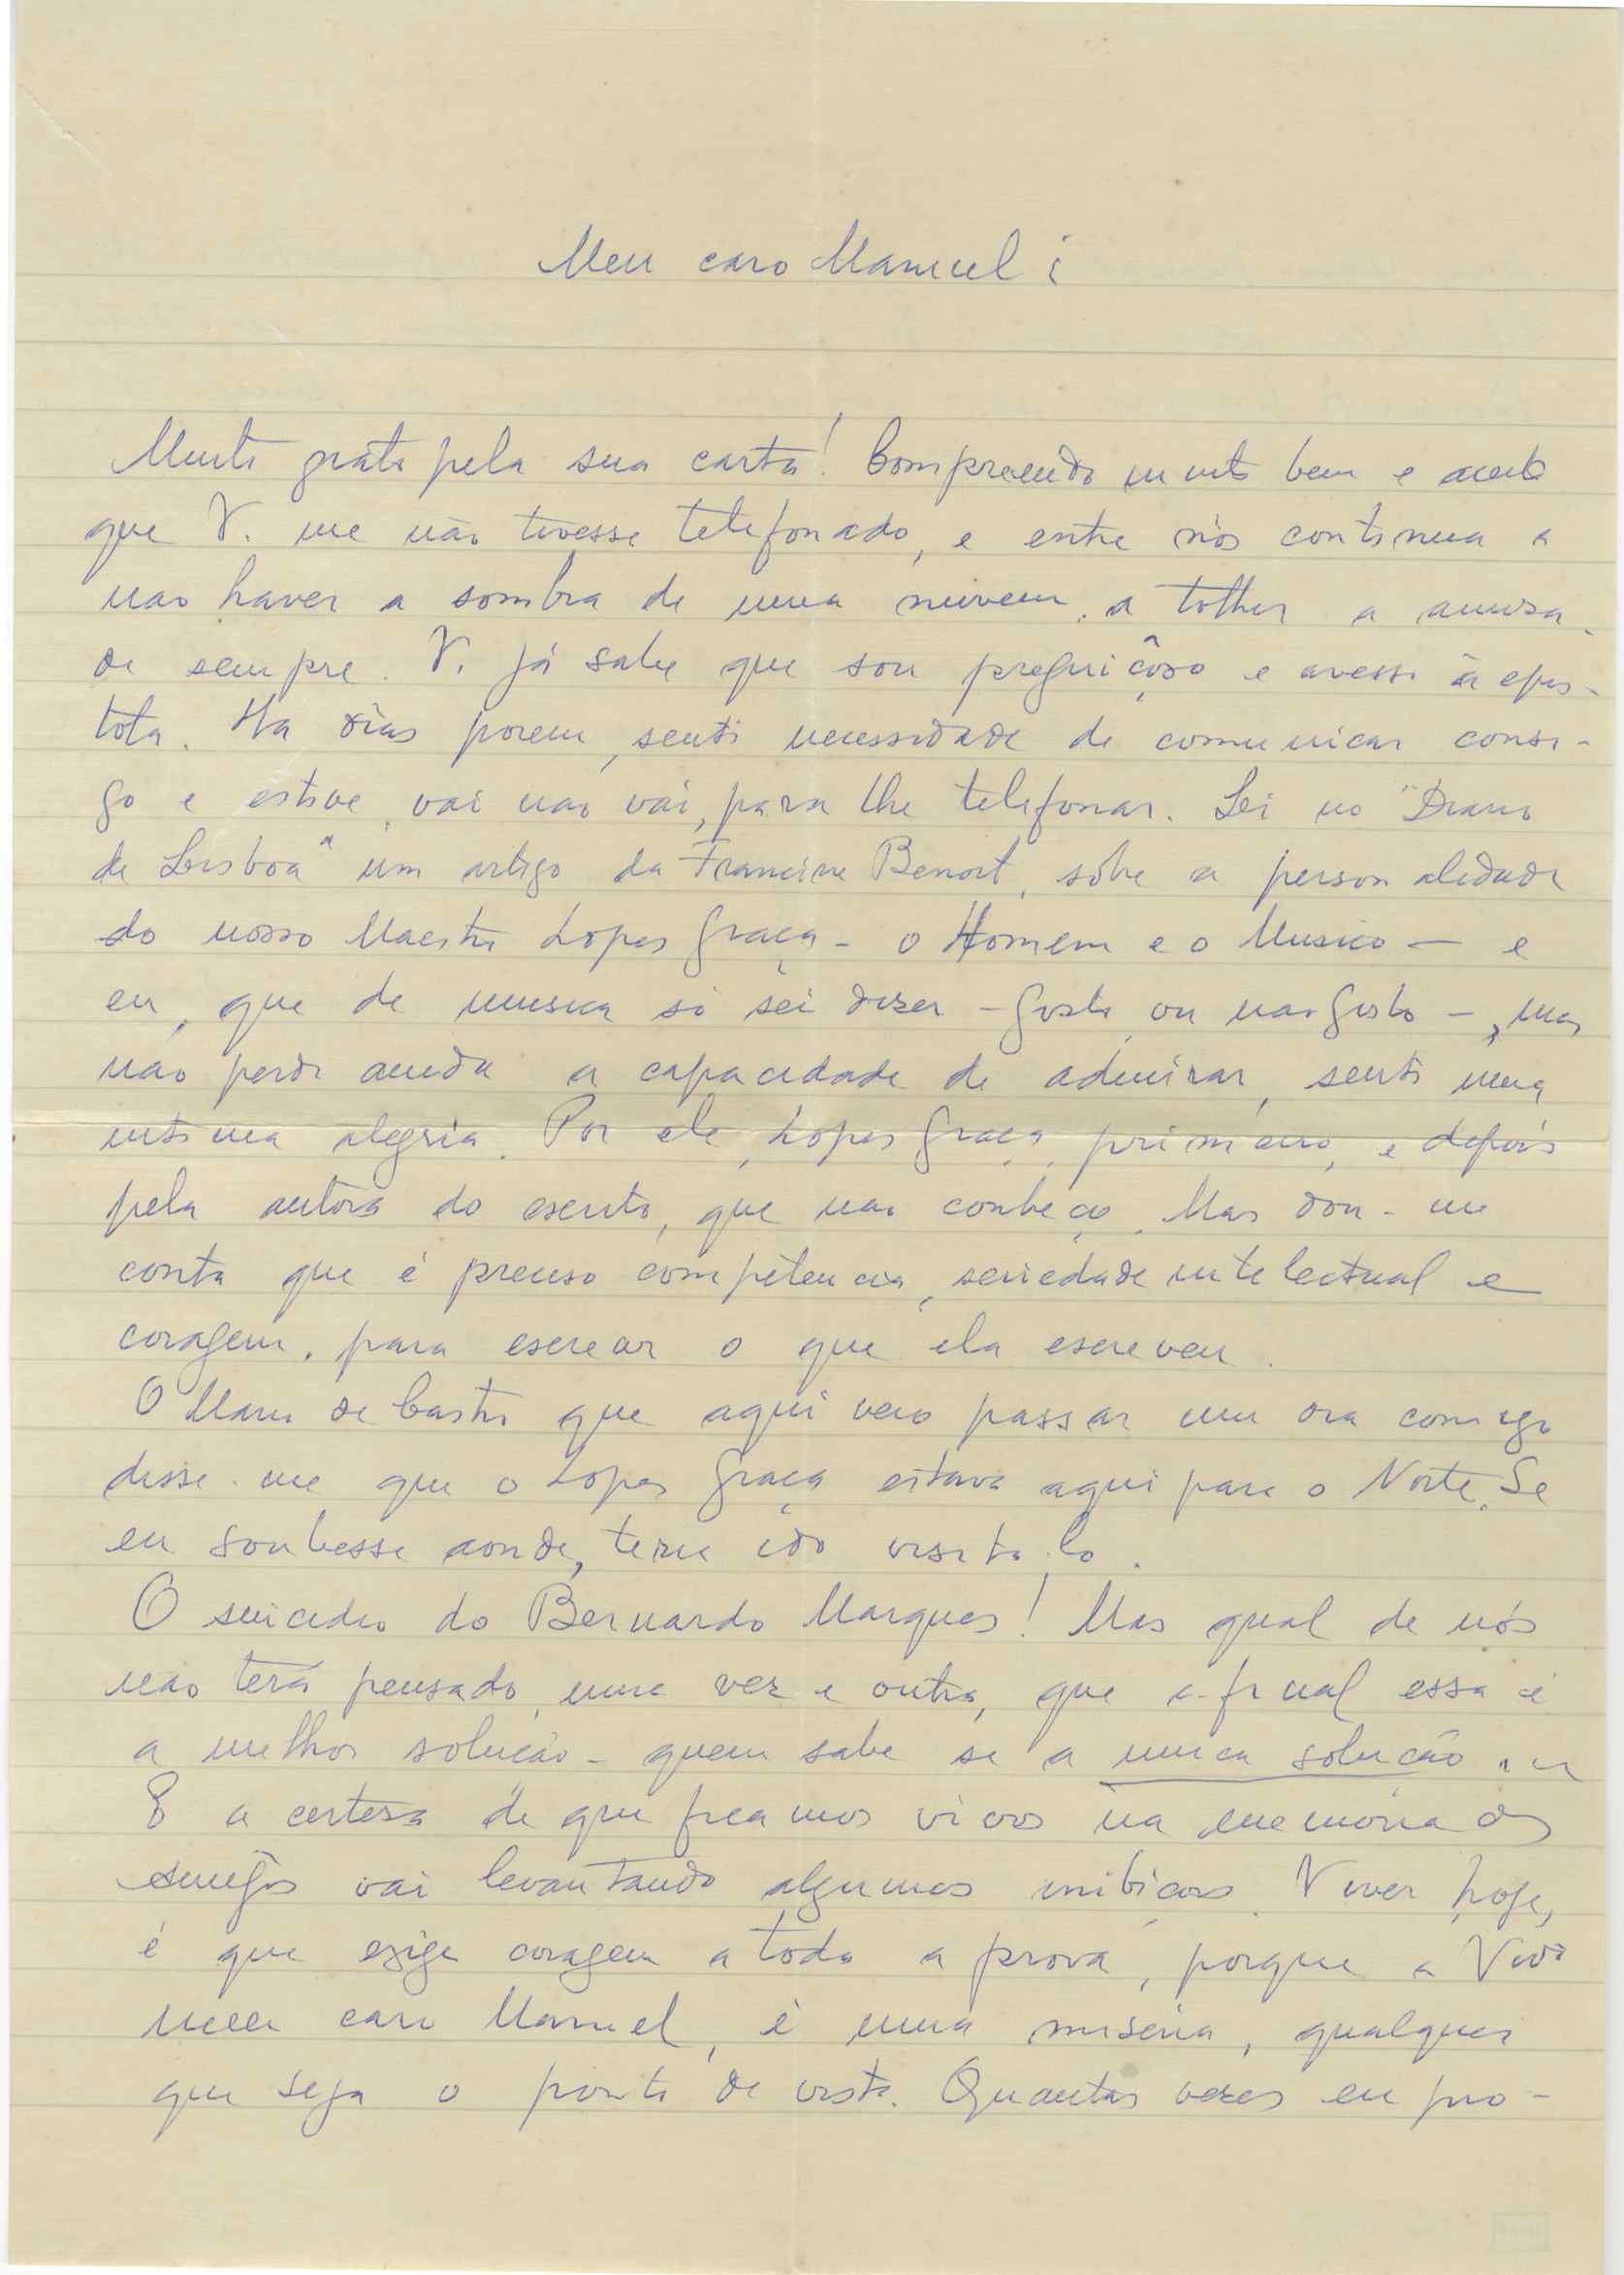 Meu caro Manuel:
Muito grato pela sua carta! Compreendo muito bem e aceito
que V. me não tivesse telefonado, e entre nós continua a
não haver a sombra de uma nuvem, a tolher a amiza-
de sempre. V. já sabe que sou preguiçoso e avesso à epis-
tola. Ha dias porem, senti necessidade de comunicar consi-
go e estive, vai não vai, para lhe telefonar. Lei no "Diario
de Lisboa" um artigo da Francine Benoit, sôbre a personalidade
do nosso Maestro Lopes Graça - o Homem e o Musico - e
eu, que de musica só sei dizer - gosto, ou não gosto -, mas
não perdi ainda a capacidade de admirar, senti uma
intima alegria. Por ele, Lopes Graça, primeiro, e depois
pela autora do escrito, que não conheço. Mas dou-me
conta que é preciso competencia, seriedade intelectual e
coragem, para escrever o que ela escreveu.
O Mario de Castro que aqui veio passar um dia comigo
disse-me que o Lopes Graça estava aqui para o Norte. Se
eu soubesse aonde, teria ido visita-lo.
O suicidio do Bernardo Marques! Mas qual de nós
não terá pensado, uma vez e outra, que a-final essa é
a melhor solução - quem sabe se a unica solução...
E a certeza de que ficamos vivos na memória dos
amigos vai levantando algumas inibições. Viver hoje,
é que exige coragem a toda a prova, porque a Vida
meu caro Manuel, é uma miséria, qualquer
que seja o ponto de vista. Quantas vezes eu pro-